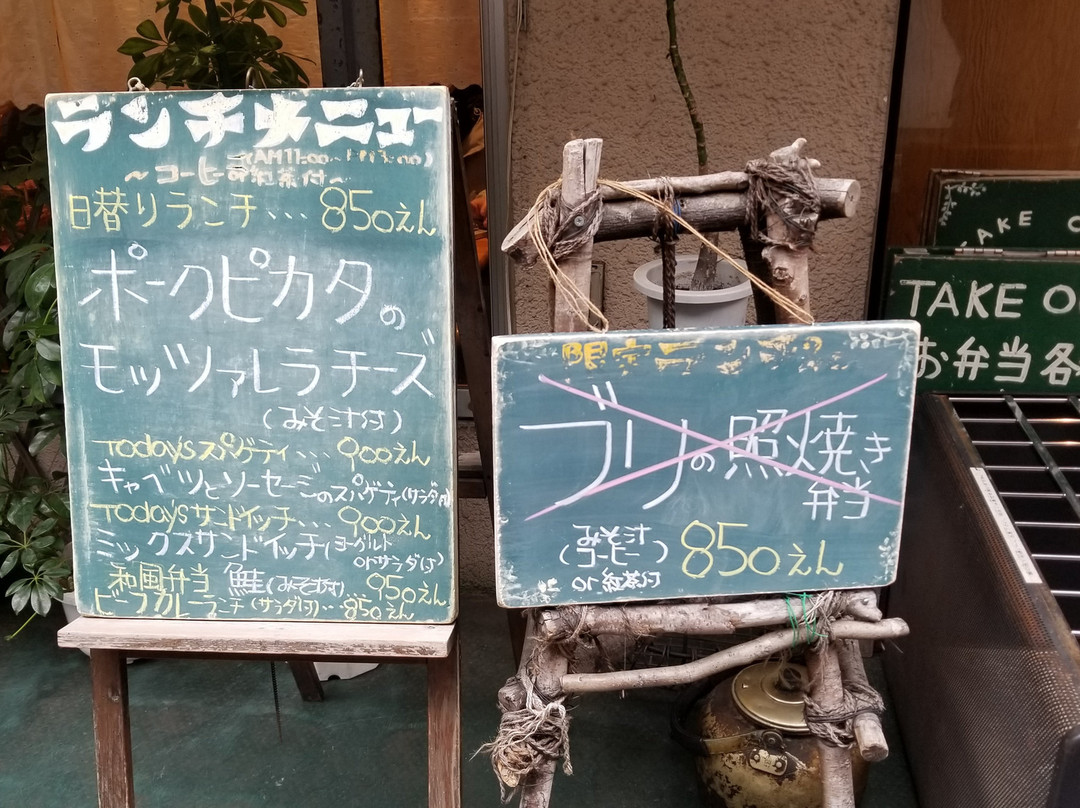 ランチメニュー
(AM11:00~PM3:00)
~コーヒーor紅茶付~
日替りランチ… 850えん
ポークピカタの
モッツァレラチーズ
(みそ汁付)
Todaysスパゲティ… 900えん
キャベツとソーセージのスパゲティ(サラダ付)
Todaysサンドイッチ… 900えん
ミックスサンドイッチ(ヨーグルト
orサラダ付)
和風弁当 鮭(みそ汁付)… 950えん
ビーフカレーランチ(サラダ付)… 850えん
限定ランチ
ブリの照焼き
弁当
(みそ汁
コーヒー)
or紅茶付
850えん
TAKE O
TAKE O
お弁当各